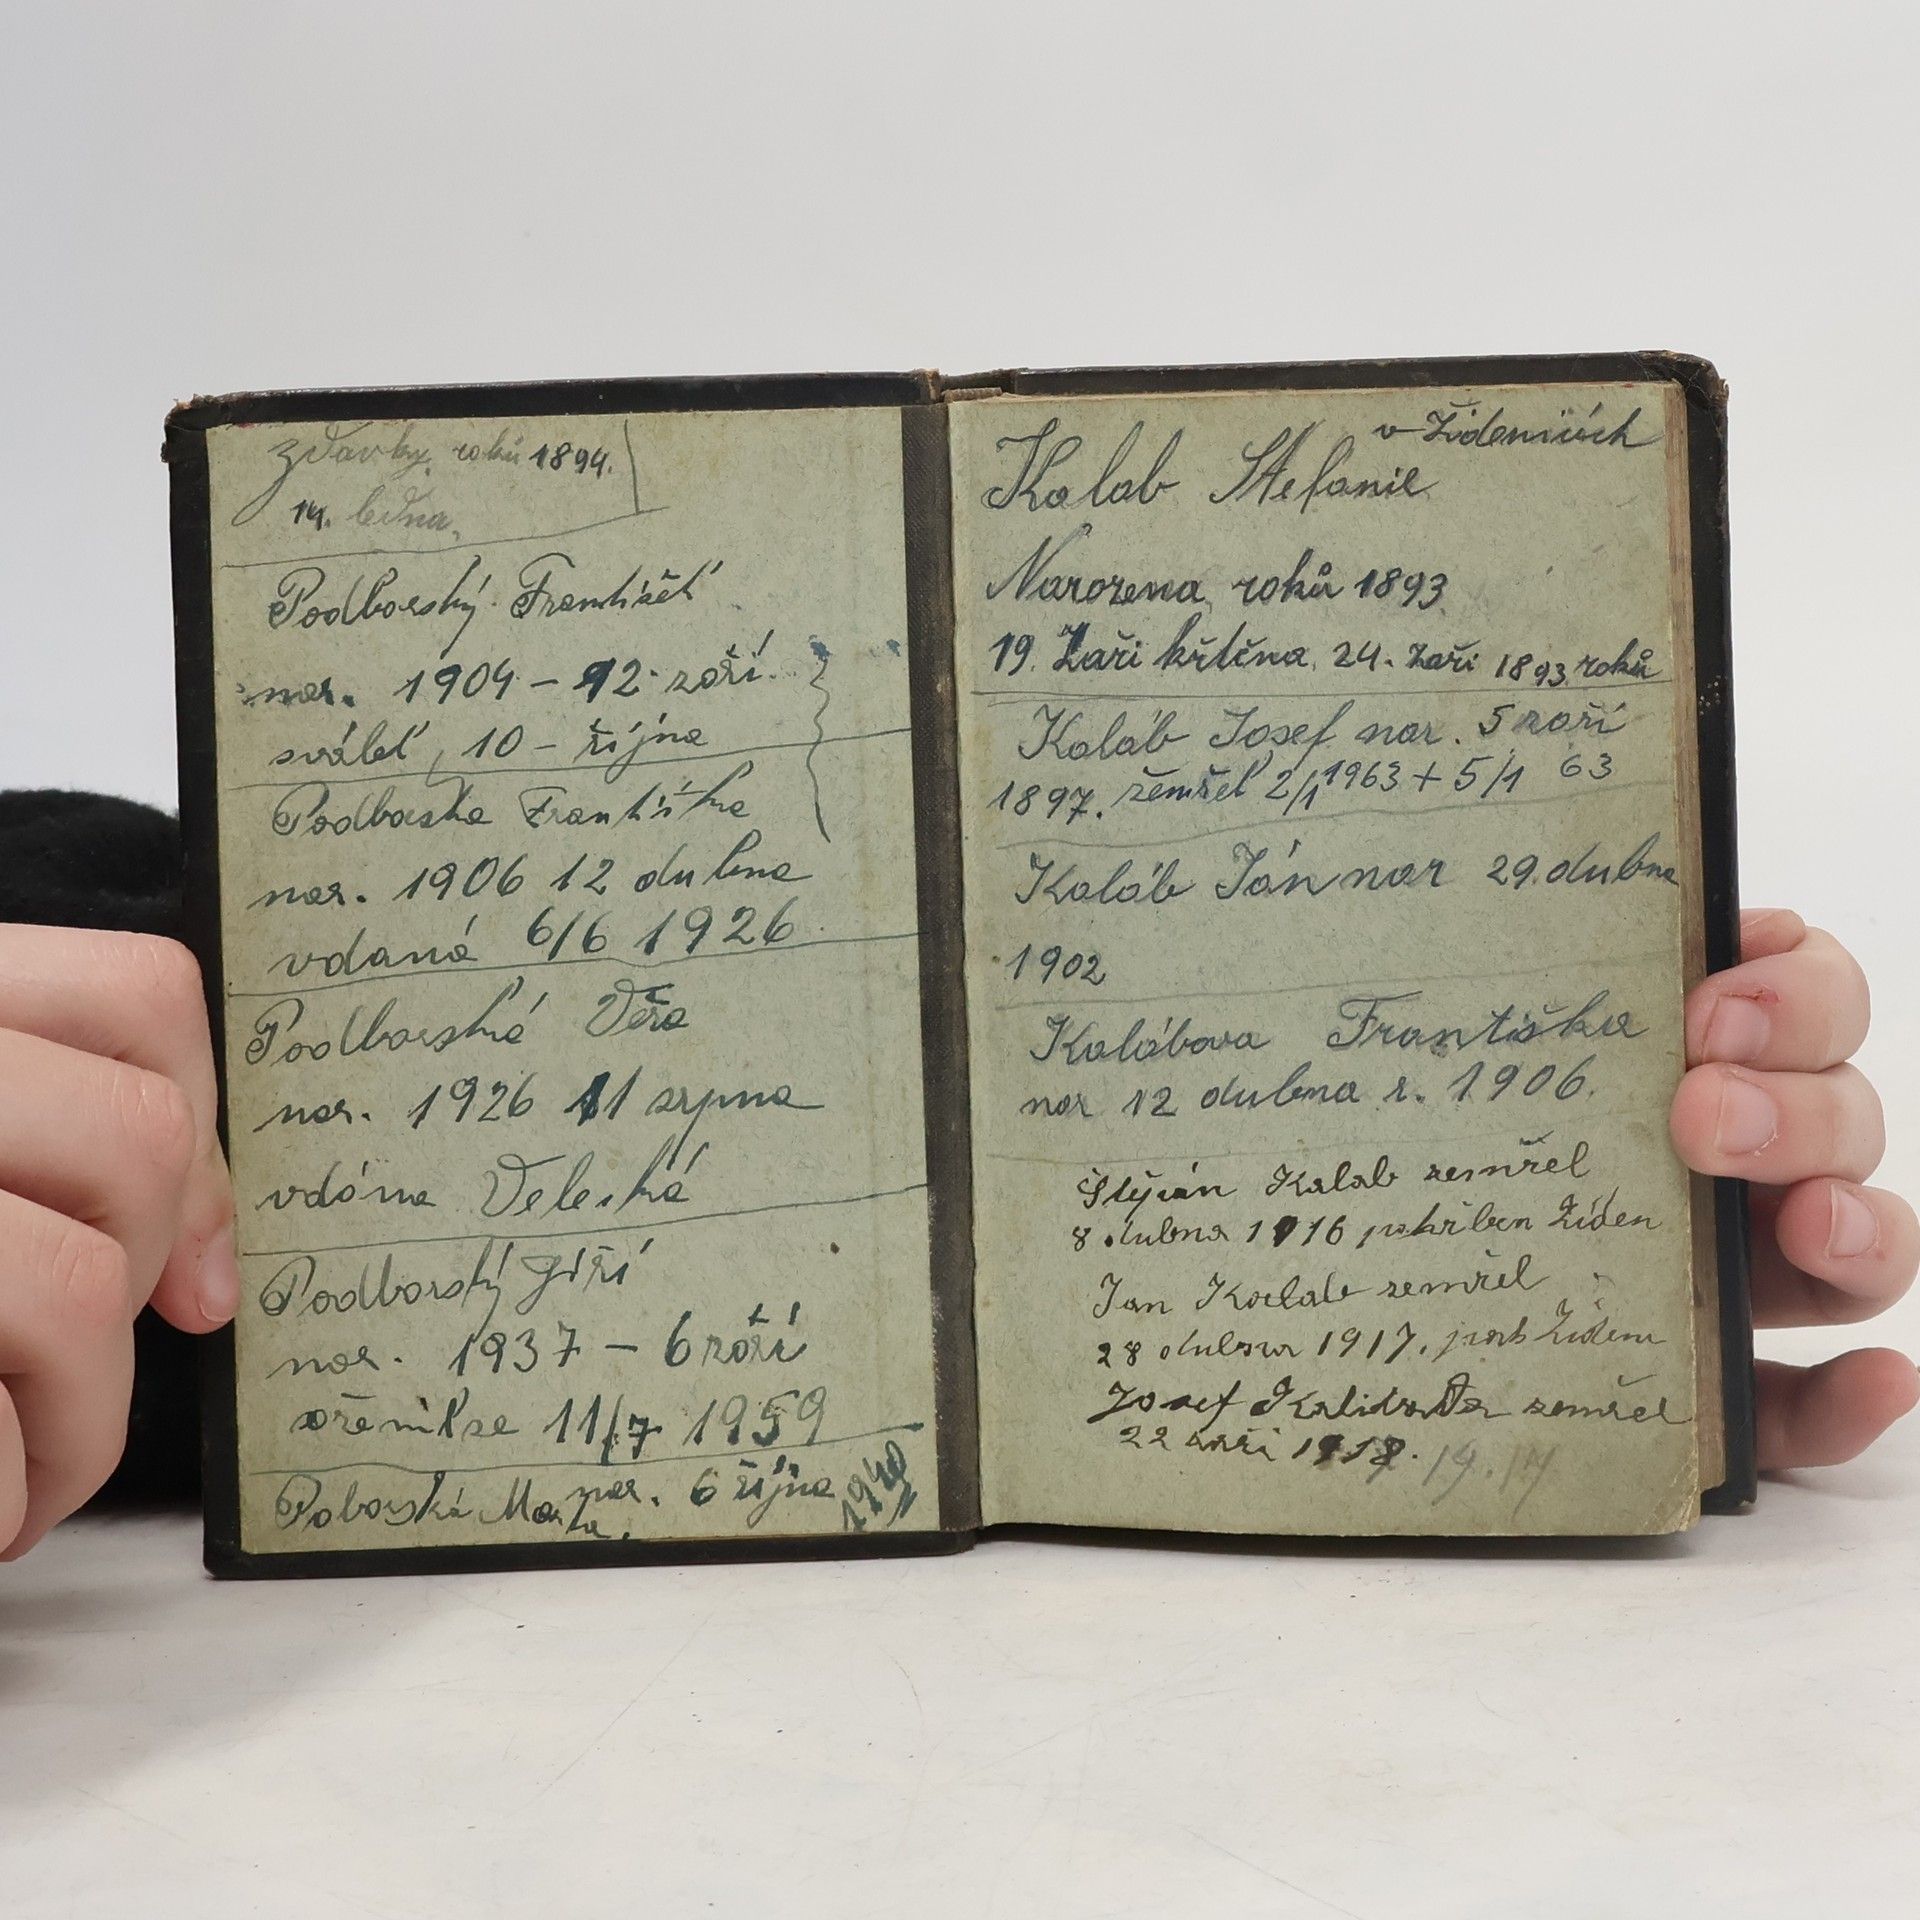 zdavky roků 1894.
14. ledna,
Podborský František
nar. 1904 - 12 září.
svátek, 10 - října
Podborska Františka
nar. 1906 12 dubna
vdaná 6/6 1926.
Podborská Věra
nar. 1926 11 srpna
vdána Veleská
Podborský Jiří
nar. 1937 - 6 září
ožemil se 11/7 1959
Poborská Marta. nar. 6 října 1940
v Židenicích
Kalab Stefanie
Narozena roků 1893
19. Zaři křtěna 24. Zaři 1893 roků
Kaláb Josef nar. 5 září
1897. žemřel 2/1 1963 + 5/1 63
Kaláb Ján nar 29. dubna
1902
Kalábova Františka
nar 12 dubna r. 1906.
Štěpán Kalab zemřel
8 dubna 1916 pohřben Židen
Jan Kalab zemřel
28 dubna 1917. poh Židen
Josef zemřel
22 září 1918.